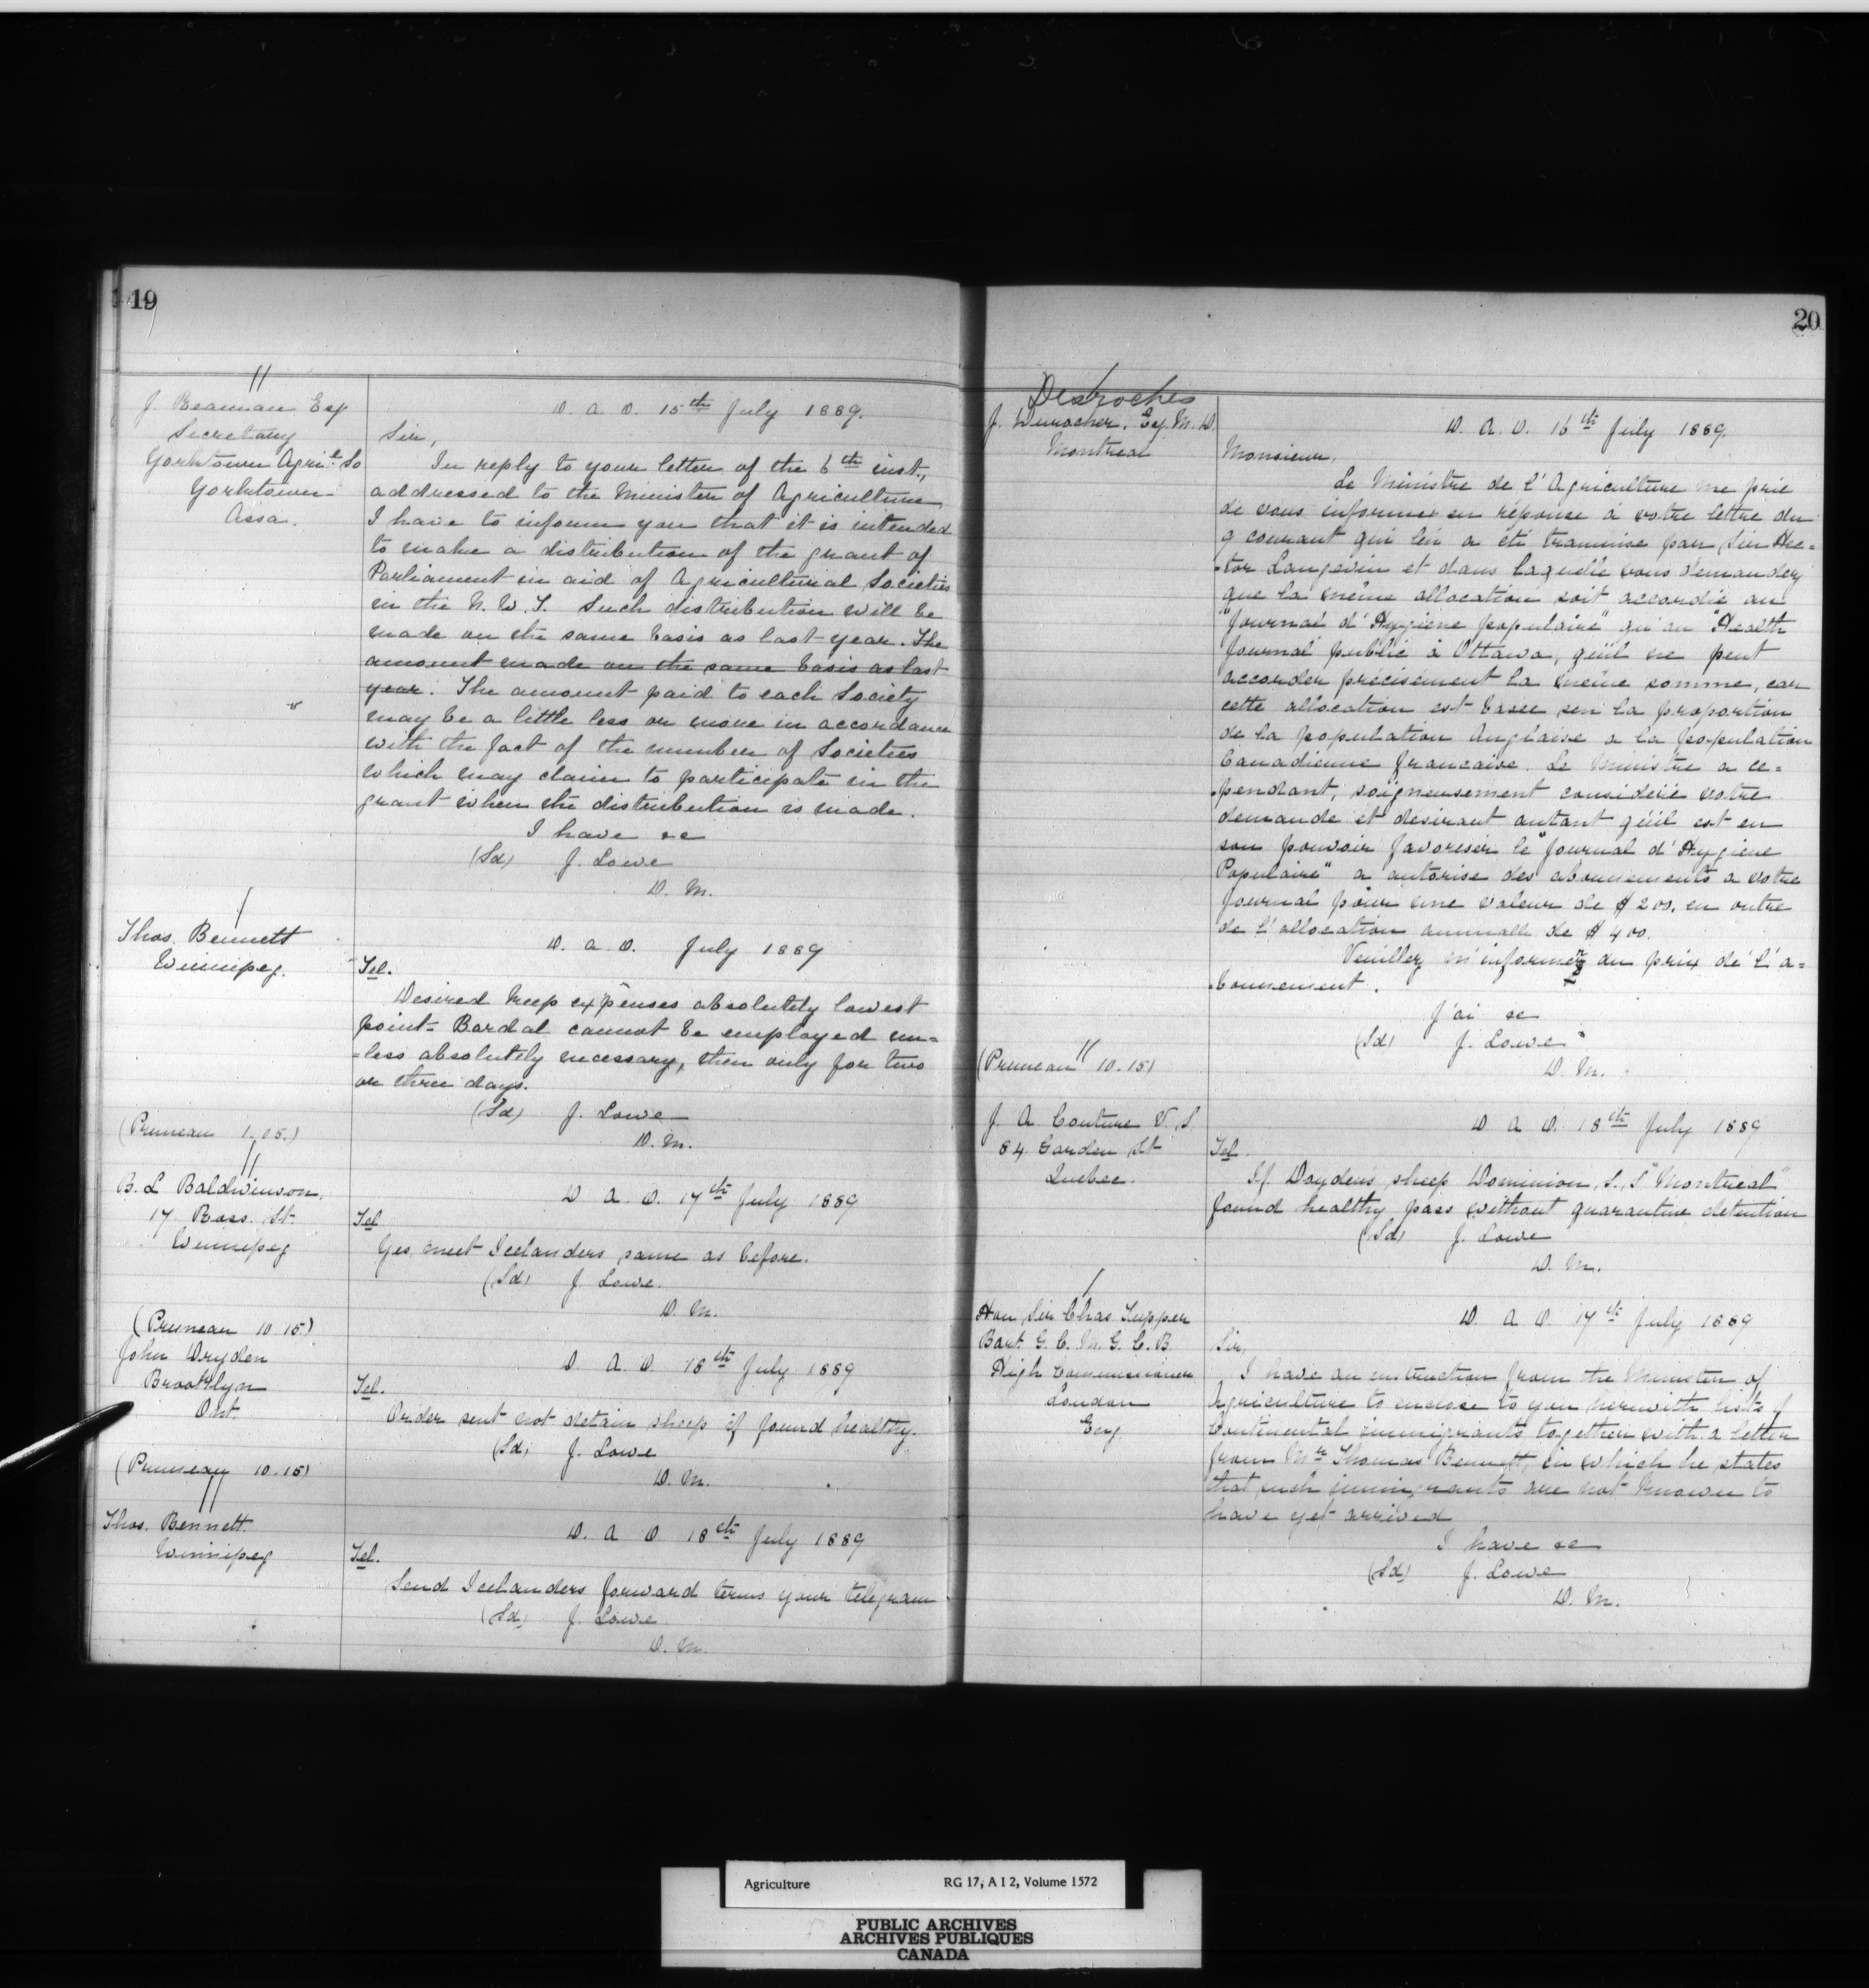 19
J. Beaman Esq
Secretary
Yorktown Agril So
Yorktown
Assa.
D. A. O. 15th July 1889.
Sir,
In reply to your letter of the 6th inst.,
addressed to the Minister of Agriculture
I have to inform you that it is intended
to make a distribution of the grant of
Parliament in aid of Agricultural Societies
in the N. W. T. Such distribution will be
made on the same basis as last year. The
amount made on the same basis as last
year. The amount paid to each Society
may be a little less or more in accordance
with the fact of the number of Societies
which may claim to participate in the
grant when the distribution is made.
I have &c
(Sd) J. Lowe
D. M.
Thos. Bennett
Winnipeg.
D. A. O. July 1889
Tel.
Desired keep expenses absolutely lowest
point - Bardal cannot be employed un=
=less absolutely necessary, then only for two
or three days.
(Sd) J. Lowe
D. M.
(Pruneau 1.05.)
B. L Baldwinson.
17 Ross. St.
Winnipeg
D A. O. 17th July 1889
Tel
Yes, meet Icelanders same as before.
(Sd) J. Lowe.
D. M.
(Pruneau 10 15)
John Dryden
Brooklyn
Ont.
D. A. O. 18th July 1889
Tel.
Order sent not detain sheep if found healthy.
(Sd) J. Lowe
D. M.
(Pruneau 10.15)
Thos. Bennett.
Winnipeg
D. A O 18th July 1889
Tel.
Send Icelanders forward terms your telegram
(Sd) J. Lowe
D. M.
20
Desroches
J. Durocher, Esq. M. D.
Montreal
D. A. O. 16th July 1889.
Monsieur,
Le Ministre de l'Agriculture me prie
de vous informer en réponse à votre lettre du
9 courant qui lui a été transmise par Sir Hec=
=tor Langevin et dans laquelle vous demandez
que la même allocation soit accordie au
"Journal d'Hygiene populaire" qu'au "Health
Journal" publié à Ottawa, qu'il ne peut
accorder precisement la même somme, car
cette allocation est basee sur la proportion
de la population Anglaise a la population
Canadienne francaise. Le Ministre a ce=
=pendant, soigneusement consideré votre
demande et desirant autant qu'il est en
son pouvoir favoriser le "Journal d'Hygiene
Populaire" a autorise des abonnements a votre
Journal pour une valeur de $200. en outre
de l'allocation annuall de $400.
Veuillez m'informer du prix de l'a=
=bonnement.
J'ai &c
(Sd) J. Lowe
D. M.
(Pruneau 10.15)
J. A. Couture V. S.
84 Garden St
Quebec.
D A O. 18th July 1889
Tel.
If Dryden's sheep Dominion S. S "Montreal"
found healthy pass without quarantine detention
(Sd) J. Lowe
D. M.
Hon Sir Chas. Tupper
Bart G. C. M. G. C. B.
High Commissioner
London
Eng
D. A O. 17th July 1889
Sir,
I have an instruction from the Minister of
Agriculture to enclose to you herewith lists of
Continental immigrants together with a letter
from Mr Thomas Bennett, in which he states
that such immigrants are not known to
have yet arrived
I have &c
(Sd) J. Lowe
D. M.
Agriculture RG 17, A I 2, Volume 1572
PUBLIC ARCHIVES
ARCHIVES PUBLIQUES
CANADA